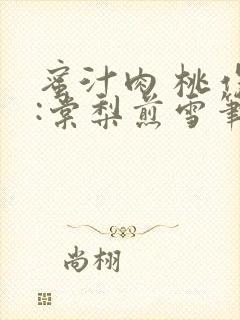 蜜汁肉桃作
:棠梨煎雪筆
尚栩